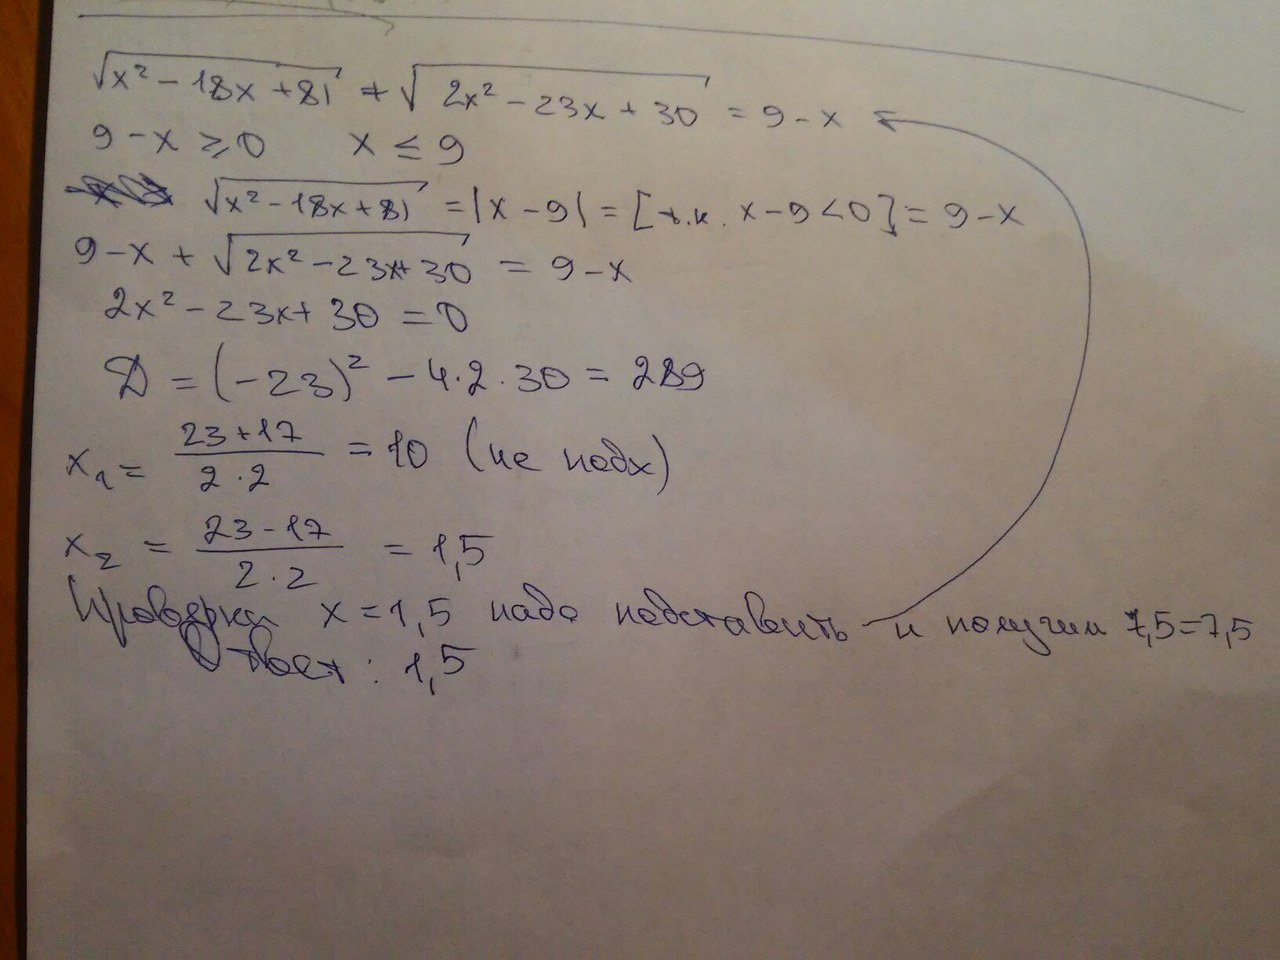 √(x² - 18x + 81) + √(2x² - 23x + 30) = 9 - x
9 - x ⩾ 0 x ≤ 9
√(x² - 18x + 81) = |x - 9| = [т.к. x - 9 < 0] = 9 - x
9 - x + √(2x² - 23x + 30) = 9 - x
2x² - 23x + 30 = 0
D = (-23)² - 4·2·30 = 289
x₁ = (23 + 17)/(2·2) = 10 (не подх)
x₂ = (23 - 17)/(2·2) = 1,5
Проверка x = 1,5 надо подставить и получим 7,5 = 7,5
Ответ: 1,5